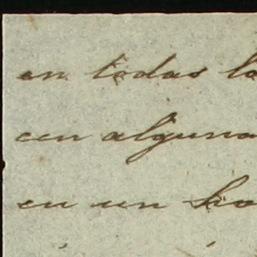 en todas
con alguna
en un